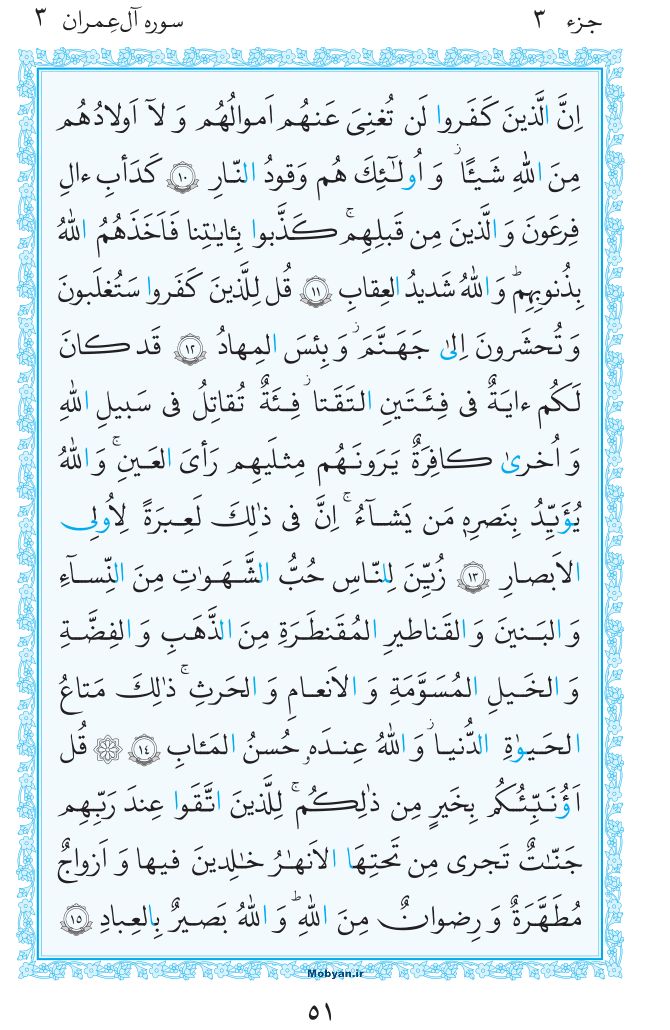 جزء ۳ سوره آل‌عِمران ۳
اِنَّ الَّذینَ کَفَروا لَن تُغنِیَ عَنهُم اَموالُهُم وَ لآ اَولادُهُم
مِنَ اللهِ شَیـًٔا ۖ وَ اُولٰـئِکَ هُم وَقودُ النّارِ ﴿۱۰﴾ کَدَأبِ ءالِ
فِرعَونَ وَ الَّذینَ مِن قَبلِهِم ۚ کَذَّبوا بِـٔایـٰتِنا فَاَخَذَهُمُ اللهُ
بِذُنوبِهِم ۗ وَ اللهُ شَدیدُ العِقابِ ﴿۱۱﴾ قُل لِلَّذینَ کَفَروا سَتُغلَبونَ
وَ تُحشَرونَ اِلیٰ جَهَنَّمَ ۖ وَ بِئسَ المِهادُ ﴿۱۲﴾ قَد کانَ
لَکُم ءایَةٌ فی فِئَتَینِ التَقَتا ۖ فِئَةٌ تُقاتِلُ فی سَبیلِ اللهِ
وَ اُخریٰ کافِرَةٌ یَرَونَهُم مِثلَیهِم رَأیَ العَینِ ۚ وَ اللهُ
یُؤَیِّدُ بِنَصرِهٖ مَن یَشآءُ ۚ اِنَّ فی ذٰلِکَ لَعِبرَةً لِاُولِی
الاَبصارِ ﴿۱۳﴾ زُیِّنَ لِلنّاسِ حُبُّ الشَّهَوٰتِ مِنَ النِّسآءِ
وَ البَنینَ وَ القَناطیرِ المُقَنطَرَةِ مِنَ الذَّهَبِ وَ الفِضَّةِ
وَ الخَیلِ المُسَوَّمَةِ وَ الاَنعامِ وَ الحَرثِ ۚ ذٰلِکَ مَتاعُ
الحَیوٰةِ الدُّنیا ۖ وَ اللهُ عِندَهٗ حُسنُ المَـٔابِ ﴿۱۴﴾ ۞ قُل
اَؤُنَبِّئُکُم بِخَیرٍ مِن ذٰلِکُم ۚ لِلَّذینَ اتَّقَوا عِندَ رَبِّهِم
جَنّـٰتٌ تَجری مِن تَحتِهَا الاَنهـٰرُ خـٰلِدینَ فیها وَ اَزواجٌ
مُطَهَّرَةٌ وَ رِضوانٌ مِنَ اللهِ ۗ وَ اللهُ بَصیرٌ بِالعِبادِ ﴿۱۵﴾
Mobyan.ir
۵۱